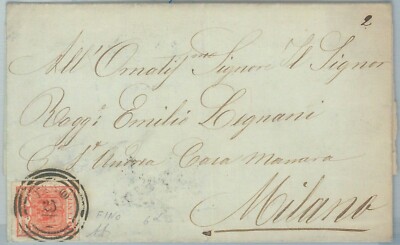 2
All' Ornatiss.mo Signore Il Signor
Rag.e Emilio Lignani
S. Andrea Casa Manara
Milano
FINO